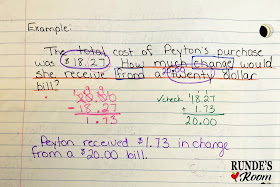 Example:
The total cost of Peyton's purchase
was $18.27. How much change would
she receive from a twenty dollar
bill?
20.00
- 18.27
1.73
√check 18.27
+ 1.73
20.00
Peyton received $1.73 in change
from a $20.00 bill.
RUNDE'S
Room